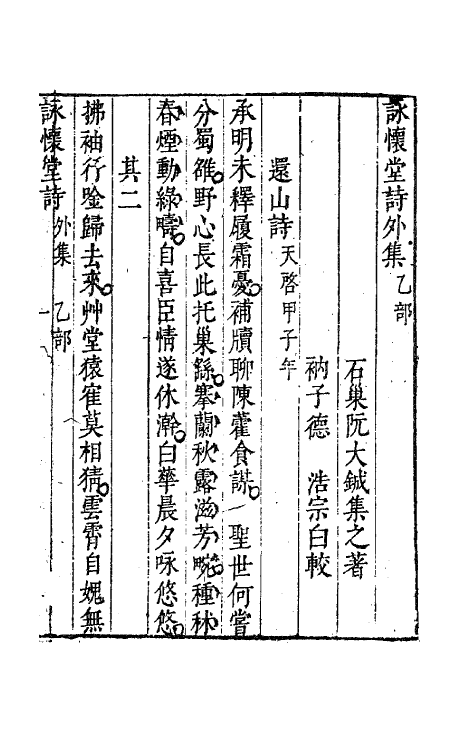 詠懷堂詩外集 乙部
石巢阮大鋮集之著
衲子德 浩宗白較
還山詩 天啓甲子年
承明未釋履霜憂補牘聊陳藿食謀聖世何嘗
分蜀雒野心長此托巢繇搴蘭秋露滋芳畹種秫
春煙動綠疇自喜臣情遂休澣白華晨夕咏悠悠
其二
拂袖行唫歸去來艸堂猿寉莫相猜雲霄自媿無
詠懷堂詩 外集 乙部 一